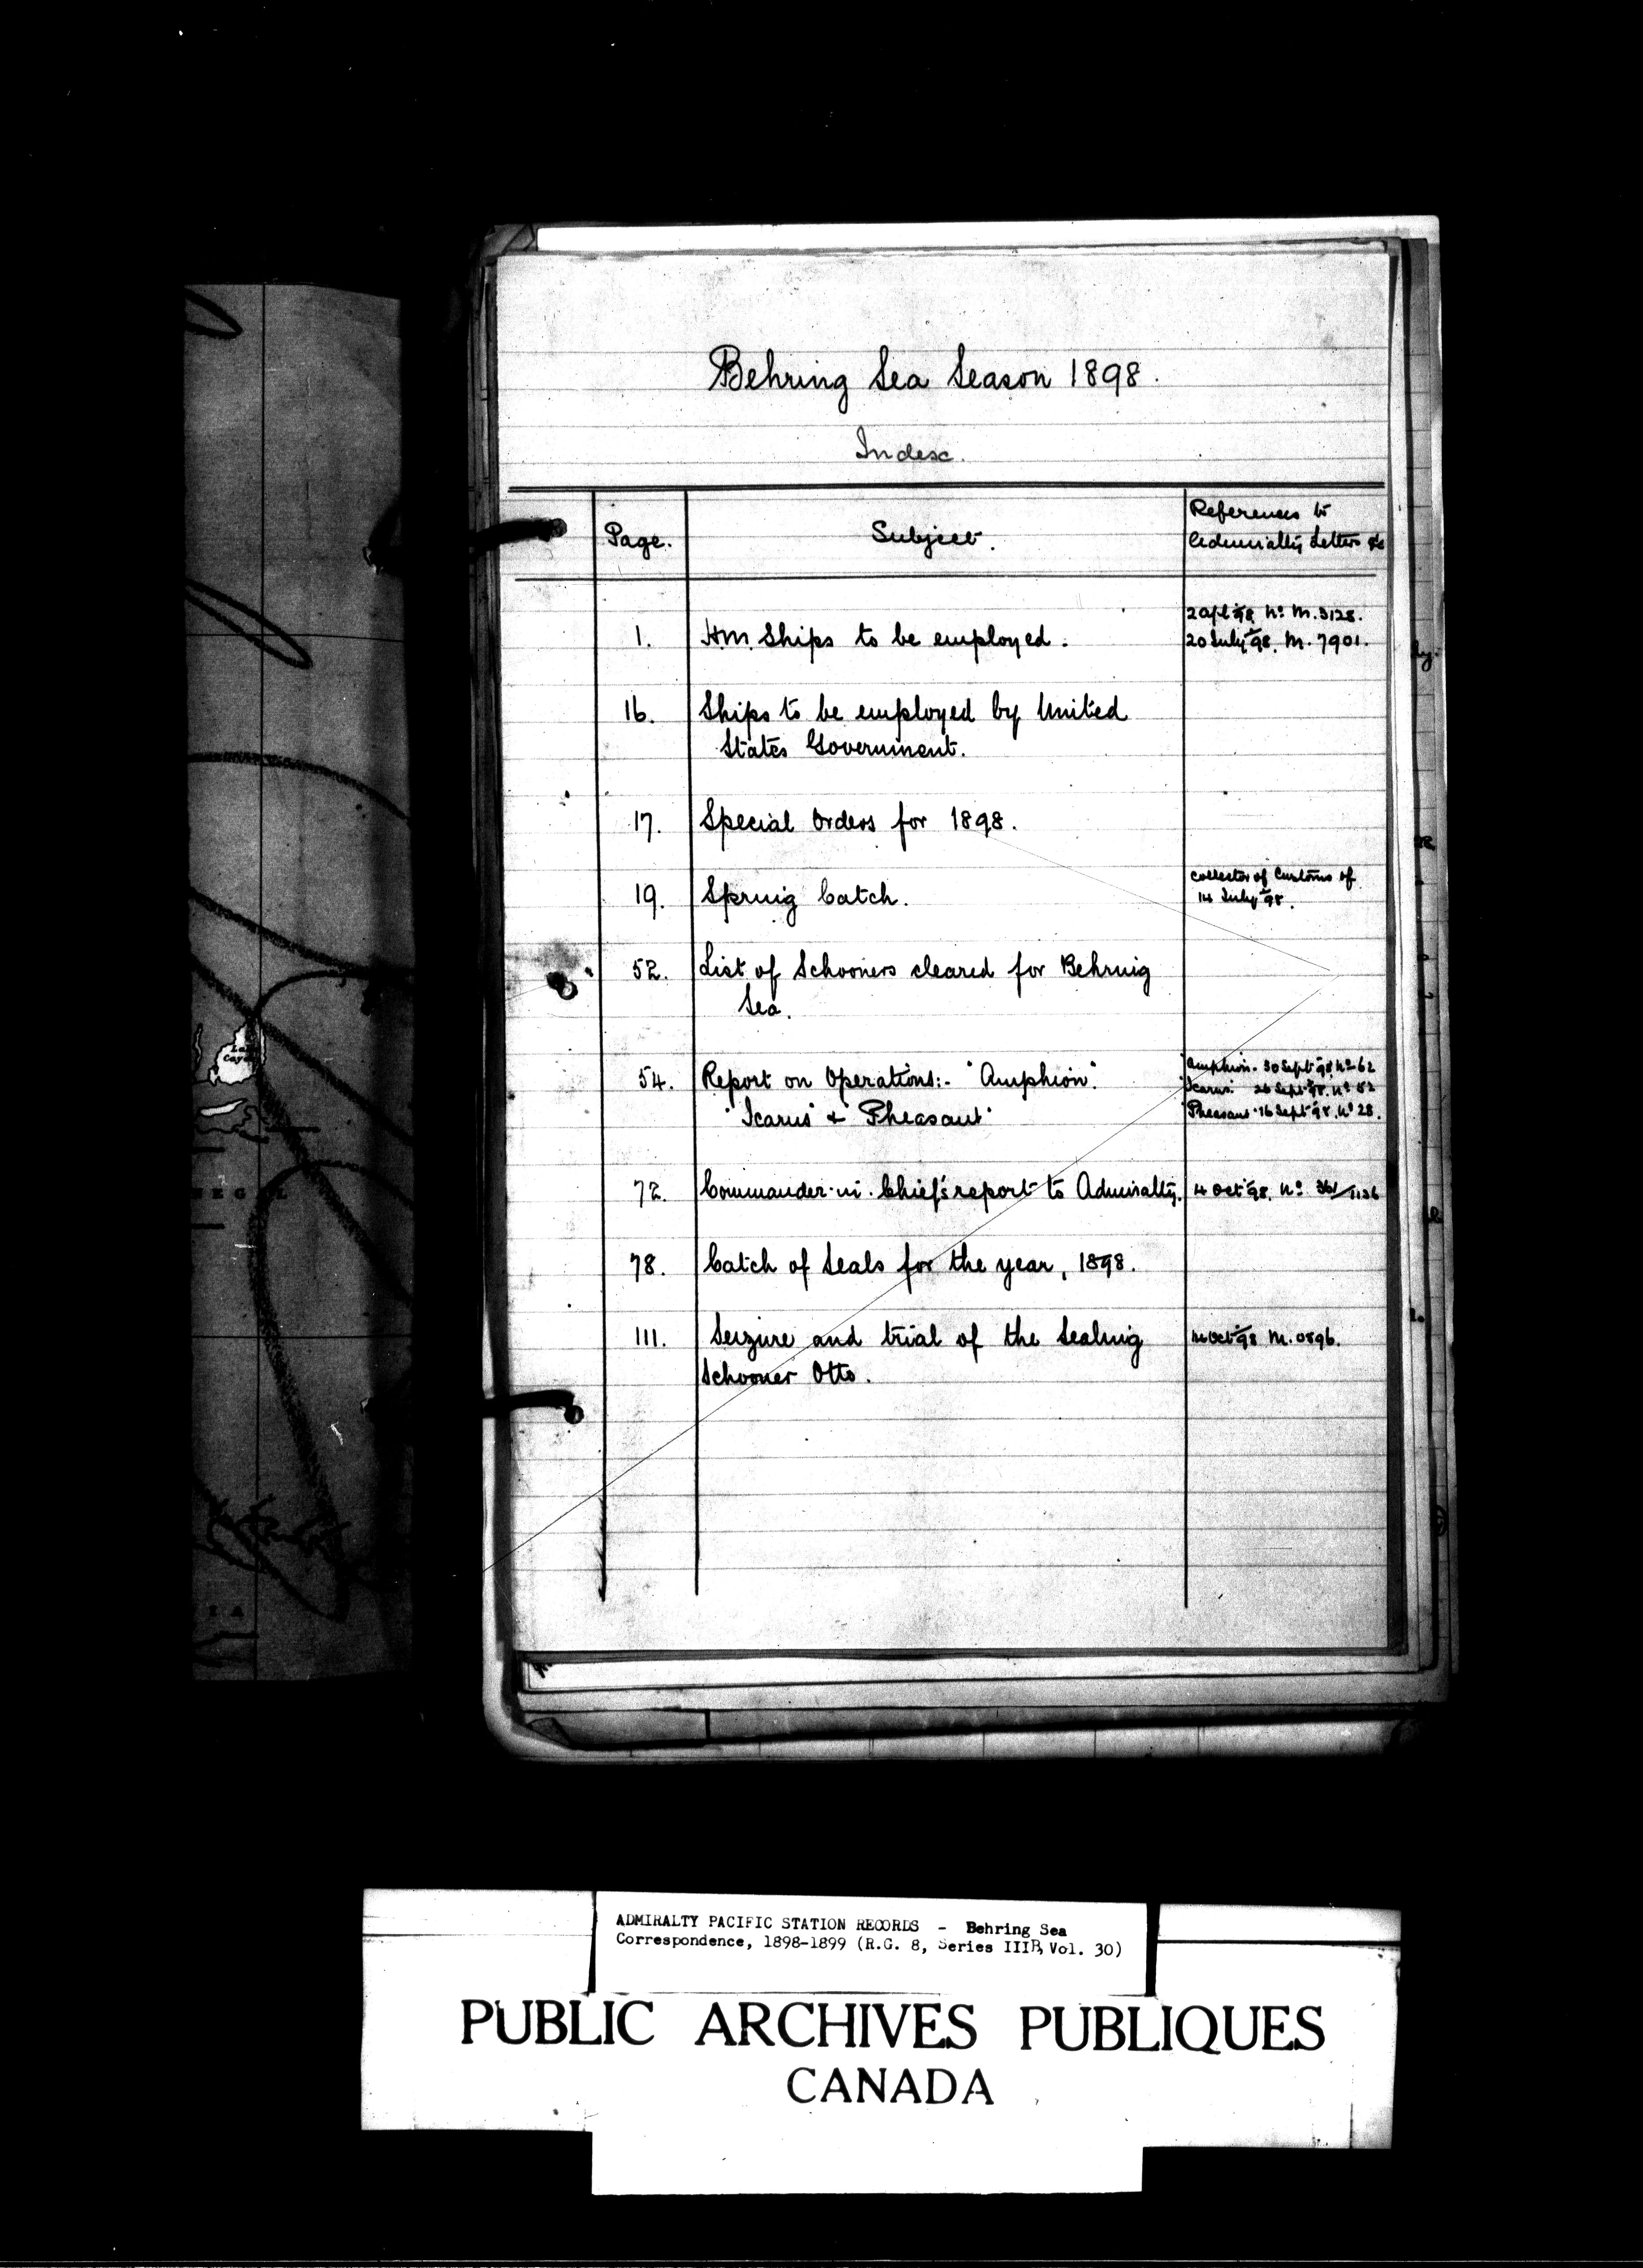 Behring Sea Season 1898.
Index.
Page.
Subject.
References to
Admiralty Letters &c
2 Apl 98. No M.3128.
1. H.M. Ships to be employed. 20 July 98. M. 7901.
16. Ships to be employed by United
States Government.
17. Special Orders for 1898.
19. Spring Catch.
Collector of Customs of
14 July 98.
52. List of Schooners cleared for Behring
Sea.
54. Report on Operations:- "Amphion."
"Icarus" & "Pheasant"
Amphion. 30 Sept 98. No 62
Icarus. 26 Sept 98. No 52
Pheasant 16 Sept 98. No 28.
72. Commander-in-Chief's report to Admiralty. 4 Oct 98. No 361/1136
78. Catch of Seals for the year, 1898.
111. Seizure and trial of the Sealing
Schooner Otto.
Oct 98 M.0896.
ADMIRALTY PACIFIC STATION RECORDS - Behring Sea
Correspondence, 1898-1899 (R.G. 8, Series IIIB, Vol. 30)
PUBLIC ARCHIVES PUBLIQUES
CANADA